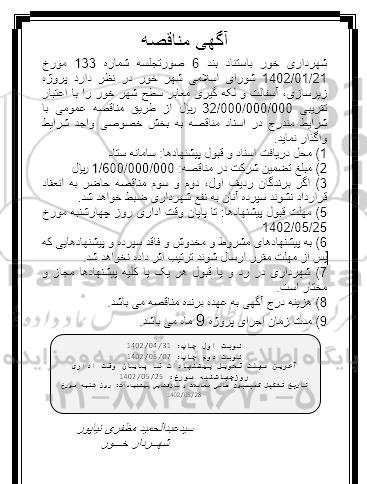 آگهی مناقصه
شهرداری خور باستناد بند 6 صورتجلسه شماره 133 مورخ
1402/01/21 شورای اسلامی شهر خور در نظر دارد پروژه
زیرسازی، آسفالت و لکه گیری معابر سطح شهر خور را با اعتبار
تقریبی 32/000/000/000 ریال از طریق مناقصه عمومی با
شرایط مندرج در اسناد مناقصه به بخش خصوصی واجد شرایط
واگذار نماید.
1) محل دریافت اسناد و قبول پیشنهادها: سامانه ستاد
2) مبلغ تضمین شرکت در مناقصه: 1/600/000/000 ریال
3) اگر برندگان ردیف اول، دوم و سوم مناقصه حاضر به انعقاد
قرارداد نشوند سپرده آنان به نفع شهرداری ضبط خواهد شد.
5) مهلت قبول پیشنهادها: تا پایان وقت اداری روز چهارشنبه مورخ
1402/05/25
6) به پیشنهادهای مشروط و مخدوش و فاقد سپرده و پیشنهادهایی که
پس از مهلت مقرر ارسال شوند ترتیب اثر داده نخواهد شد.
7) شهرداری در رد و یا قبول هر یک یا کلیه پیشنهادها مجاز و
مختار است.
8) هزینه درج آگهی به عهده برنده مناقصه می باشد.
9) مدت زمان اجرای پروژه 9 ماه می باشد.
نوبت اول چاپ: 1402/04/31
نوبت دوم چاپ: 1402/05/07
آخرین مهلت تحویل پیشنهاد ات تا پایان وقت اداری
روز چهارشنبه مورخ: 1402/05/25
1402/05/28
سیدعبدالحمید مظفری نیاپور
شهردار خور
پایگاه اطلاع رسانی
۰۲۱-۸۸۳۴۹۶۷۰-۵